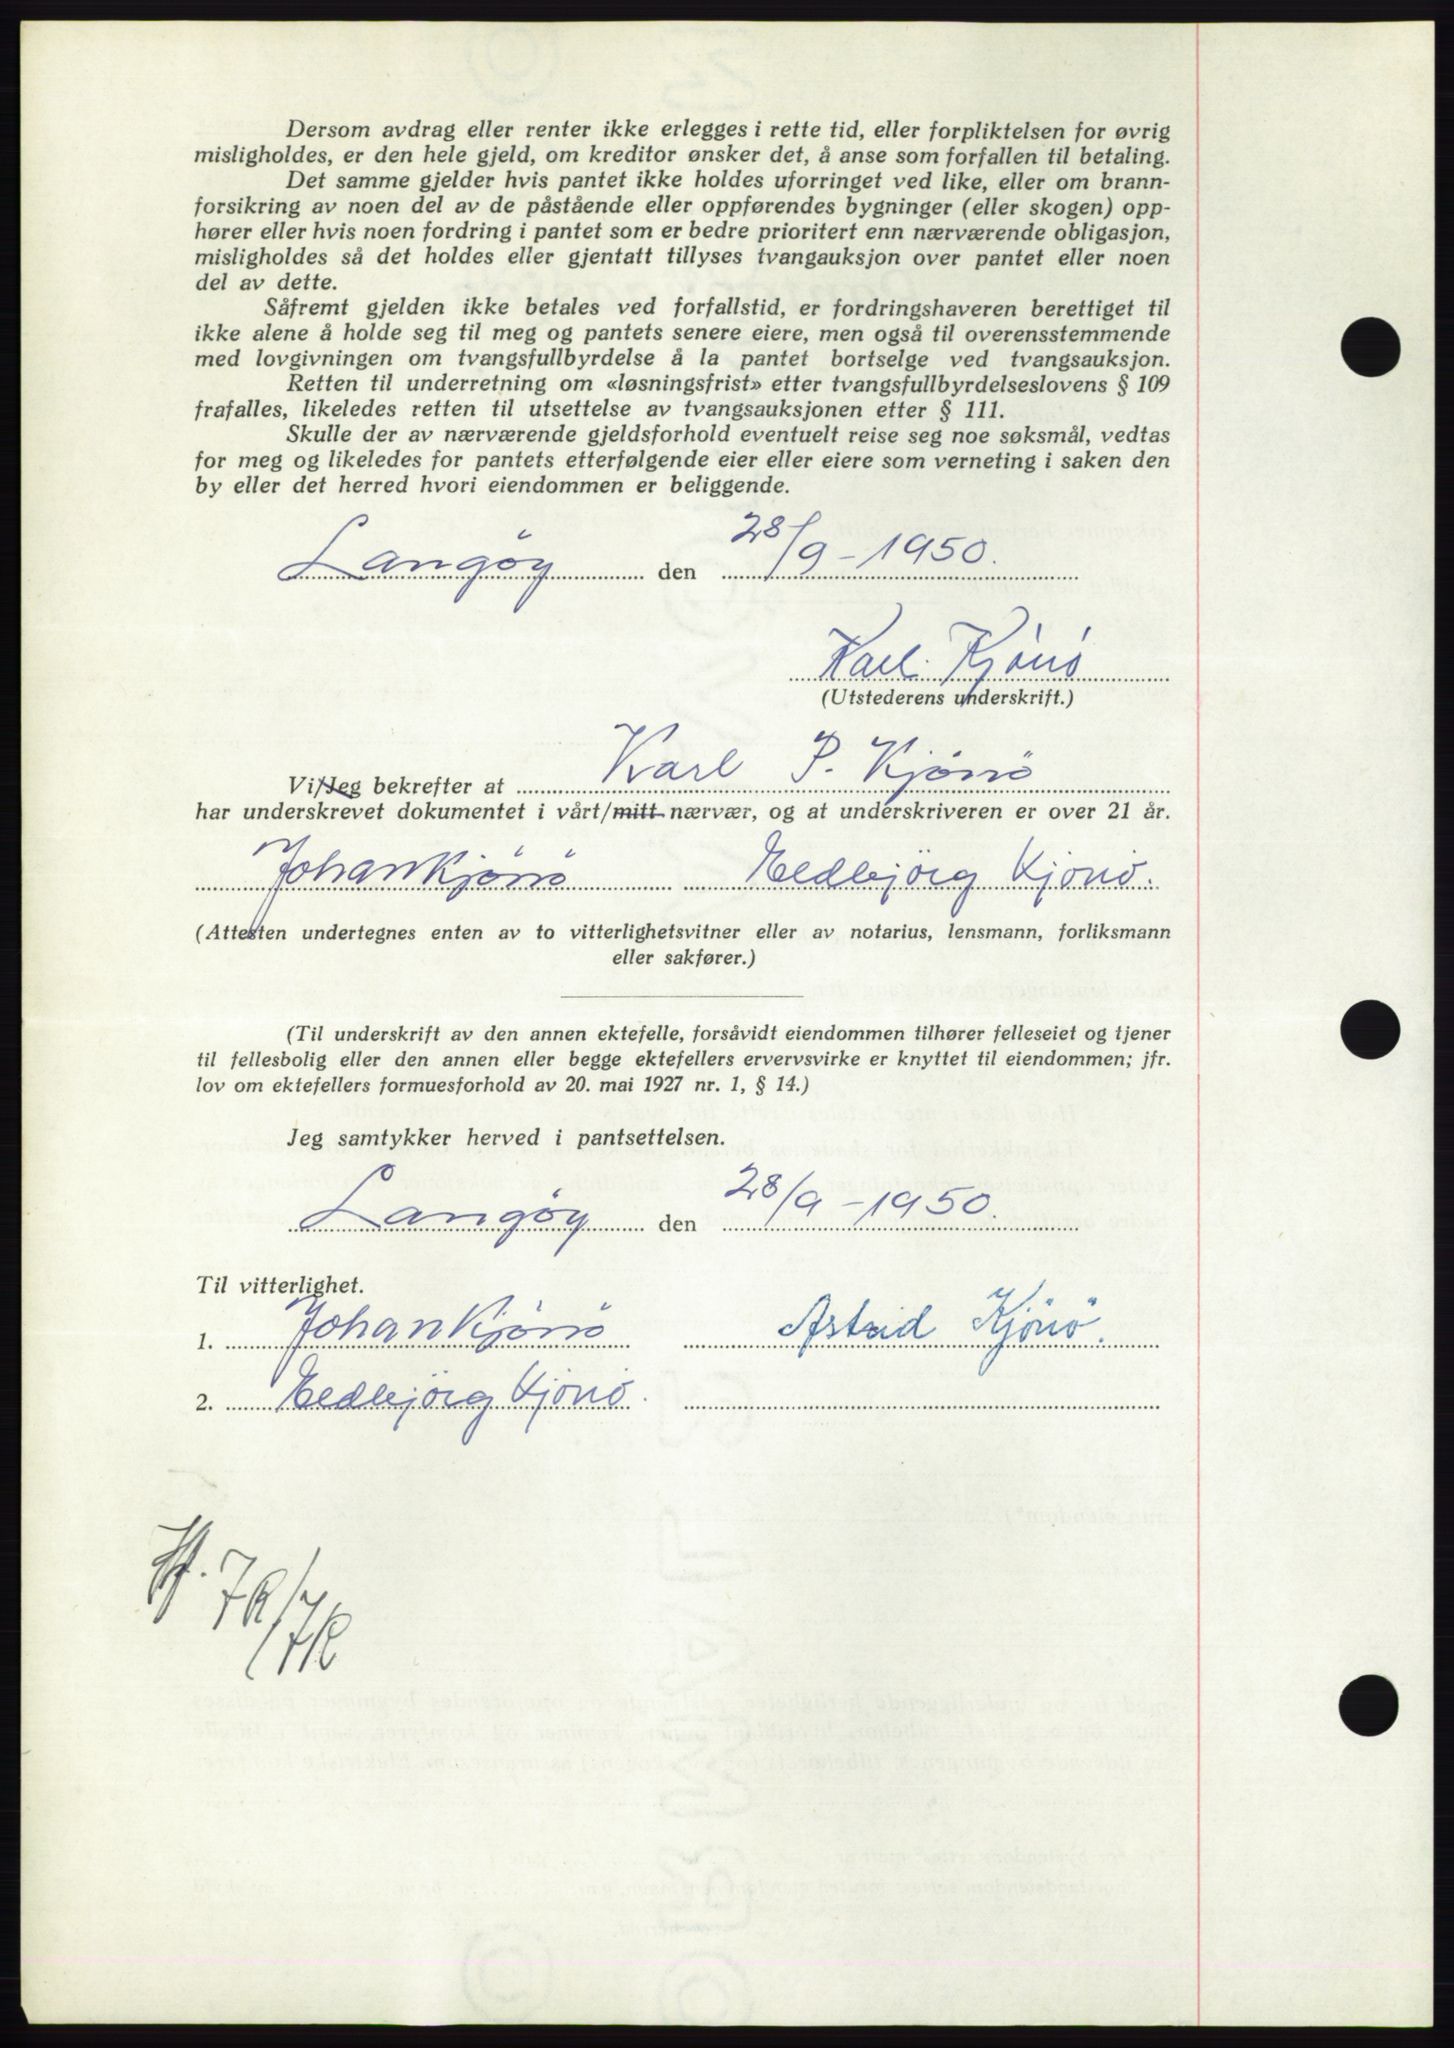 Dersom avdrag eller renter ikke erlegges i rette tid, eller forpliktelsen for øvrig
misligholdes, er den hele gjeld, om kreditor ønsker det, å anse som forfallen til betaling.
Det samme gjelder hvis pantet ikke holdes uforringet ved like, eller om brann-
forsikring av noen del av de påstående eller oppførendes bygninger (eller skogen) opp-
hører eller hvis noen fordring i pantet som er bedre prioritert enn nærværende obligasjon,
misligholdes så det holdes eller gjentatt tillyses tvangauksjon over pantet eller noen
del av dette.
Såfremt gjelden ikke betales ved forfallstid, er fordringshaveren berettiget til
ikke alene å holde seg til meg og pantets senere eiere, men også til overensstemmende
med lovgivningen om tvangsfullbyrdelse å la pantet bortselge ved tvangsauksjon.
Retten til underretning om «løsningsfrist» etter tvangsfullbyrdelseslovens § 109
frafalles, likeledes retten til utsettelse av tvangsauksjonen etter § 111.
Skulle der av nærværende gjeldsforhold eventuelt reise seg noe søksmål, vedtas
for meg og likeledes for pantets etterfølgende eier eller eiere som verneting i saken den
by eller det herred hvori eiendommen er beliggende.
Langöy den 28/9-1950.
Karl Kjönö
(Utstederens underskrift.)
Vi/Jeg bekrefter at Karl P. Kjönö
har underskrevet dokumentet i vårt/mitt nærvær, og at underskriveren er over 21 år.
Johan Kjönö Eldbjörg Kjönö.
(Attesten undertegnes enten av to vitterlighetsvitner eller av notarius, lensmann, forliksmann
eller sakfører.)
(Til underskrift av den annen ektefelle, forsåvidt eiendommen tilhører felleseiet og tjener
til fellesbolig eller den annen eller begge ektefellers ervervsvirke er knyttet til eiendommen; jfr.
lov om ektefellers formuesforhold av 20. mai 1927 nr. 1, § 14.)
Jeg samtykker herved i pantsettelsen.
Langöy den 28/9-1950.
Til vitterlighet.
1. Johan Kjönö Astrid Kjönö.
2. Eldbjörg Kjönö.